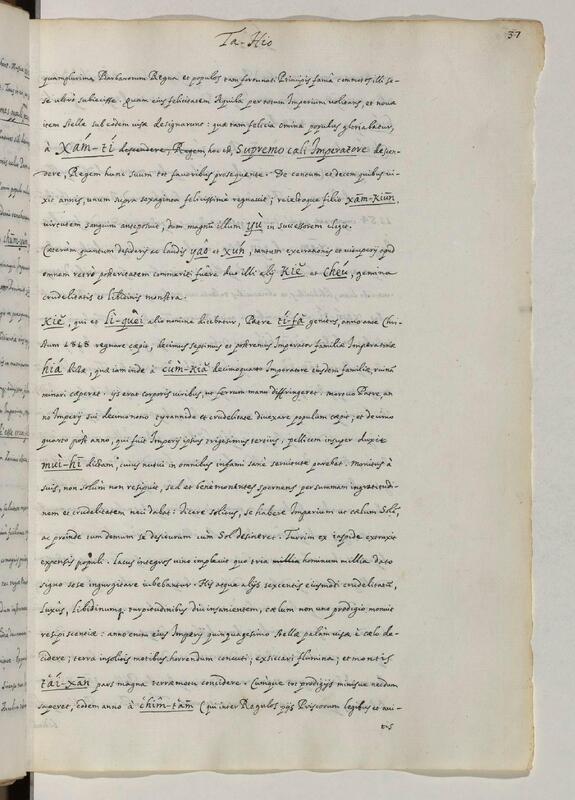 Tá-Hio
37
quamplurima Barbarorum Regna et populos tam fortunati Principis famâ commotos illi se-
se ultrò subiecisse. Quam eius felicitatem Aquila per totum Imperium volians, et noua
item Stella sub eodem visa designarunt: quæ tam felicia omina populus gloriabatur,
à Xám-tí descendere, Regem, hoc est, Supremo cæli Imperatore descen-
dere, Regem hunc suum tot fauoribus prosequente. De centum et decem quibus vi-
xit annis, unum supra sexaginta felicissimè regnauit; reiectoque filio xam-kiūn
virtutem sanguini anteposuit, dum magnum illum yù in successorem elegit.
Cæterùm quantum desiderij ac laudis yaô et xún, tantum execrationis et vituperij apud
omnem retrò posteritatem commeriti fuêre duo illi alij kiĕ et chéu, gemina
crudelitatis et libidinis monstra.
Kiĕ, qui et li-quèi alio nomine dicebatur, Patre tí-fă genitus, anno ante Chri-
stum 1818 regnare cæpit, decimus septimus et postremus Imperator familiæ Imperatoriæ
hiá dictæ, quæ iam inde à cùm-kiă decimoquarto Imperatore eiusdem familiæ, ruinã
minari cæperat. ijs erat corporis viribus, ut ferrum manu diffringeret. mortuo Patre, an-
no Imperij sui decimo nono tyrannide et crudelitate diuexare populum cæpit; et decimo
quarto post anno, qui fuit Imperij ipsius trigesimus tertius, pellicem insuper duxit
mui-hì dictam, cuius nutui in omnibus infami sanè seruitute parebat. monitus à
suis, non solùm non resipuit, sed et benè monentes spernens per summam ingratitudi-
nem et crudelitatem neci dabat. dicere solitus, se habere Imperium ut cælum Solẽ,
ac proinde tum demum se desiturum cùm Sol desineret. Turrim ex iaspide extruxit
expensis populi. Lacus integros vino impleuit quo tria hominum millia dato
signo sese ingurgitare iubebantur. His atque alijs sexcentis eiusmodi crudelitatũ,
Luxûs, Libidinumq. turpitudinibus diu insanientem, cælum non uno prodigio monuit
resipiscentiæ: anno enim eius Imperij quinquagesimo stellæ palàm visæ è cælo de-
cidere; terra insolitis motibus horrendùm concuti; exsiccari flumina; et montis
tái-xān pars magna terræmotu concidere. Cumque tot prodigijs minisue necdum
saperet, eodem anno à chîm-tâm (qui inter Regulos pijs Priscorum legibus et mi-